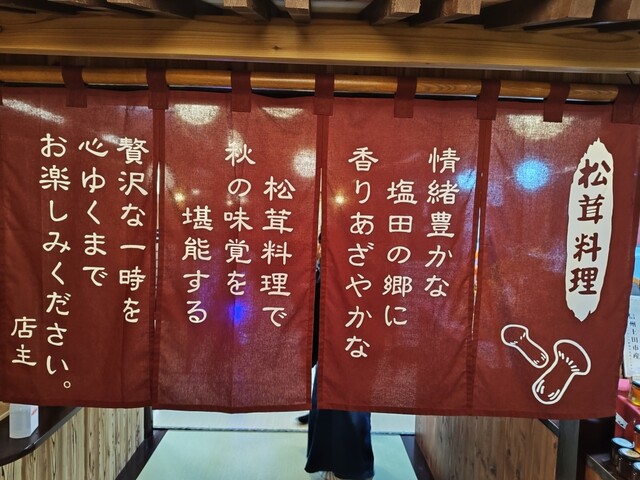 松茸料理
情緒豊かな
塩田の郷に
香りあざやかな
松茸料理で
秋の味覚を
堪能する
贅沢な一時を
心ゆくまで
お楽しみください。
店主